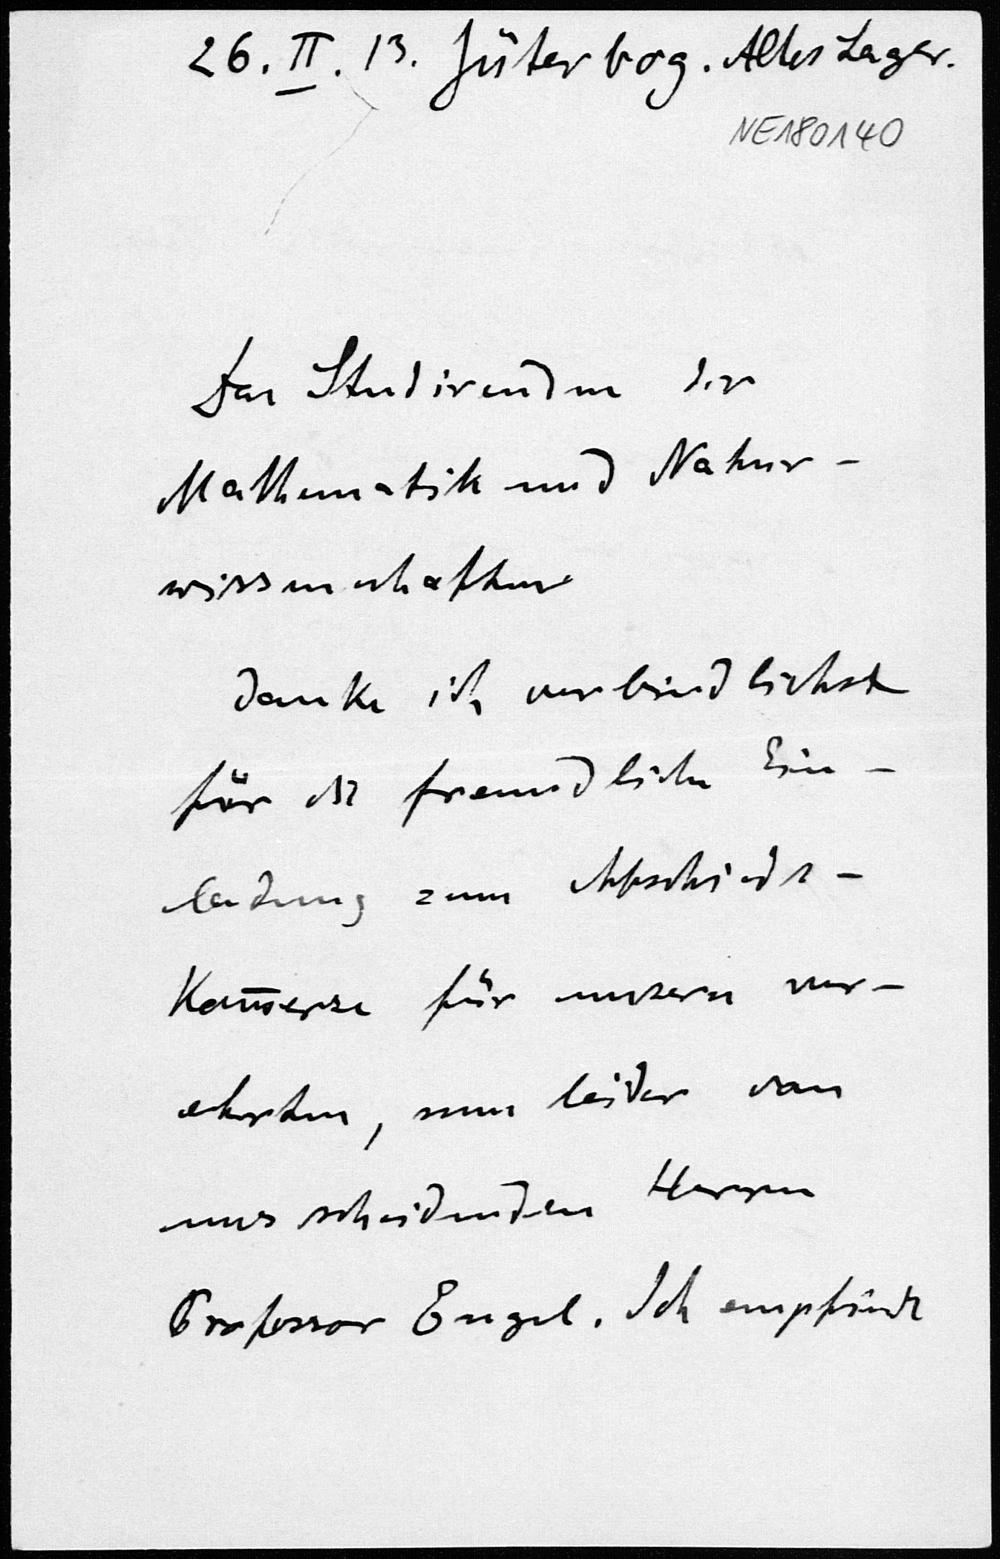 26. II. 13. Jüterbog. Altes Lager.
NE180140
Den Studirenden der
Mathematik und Natur-
wissenschaften
danke ich verbindlichst
für die freundliche Ein-
ladung zum Abschieds-
Kom̅erse für unsern ver-
ehrten, nun leider von
uns scheidenden Herrn
Professor Engel. Ich empfinde